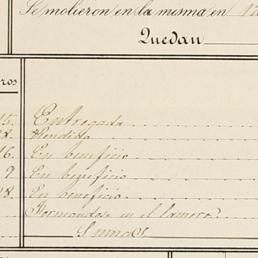 Se molieron en la misma en 17
Quedan
ros
15. Entregada
2. Vendida
16. En beneficio
9 En beneficio
28. En beneficio
Formandose en el lamero
Sumas